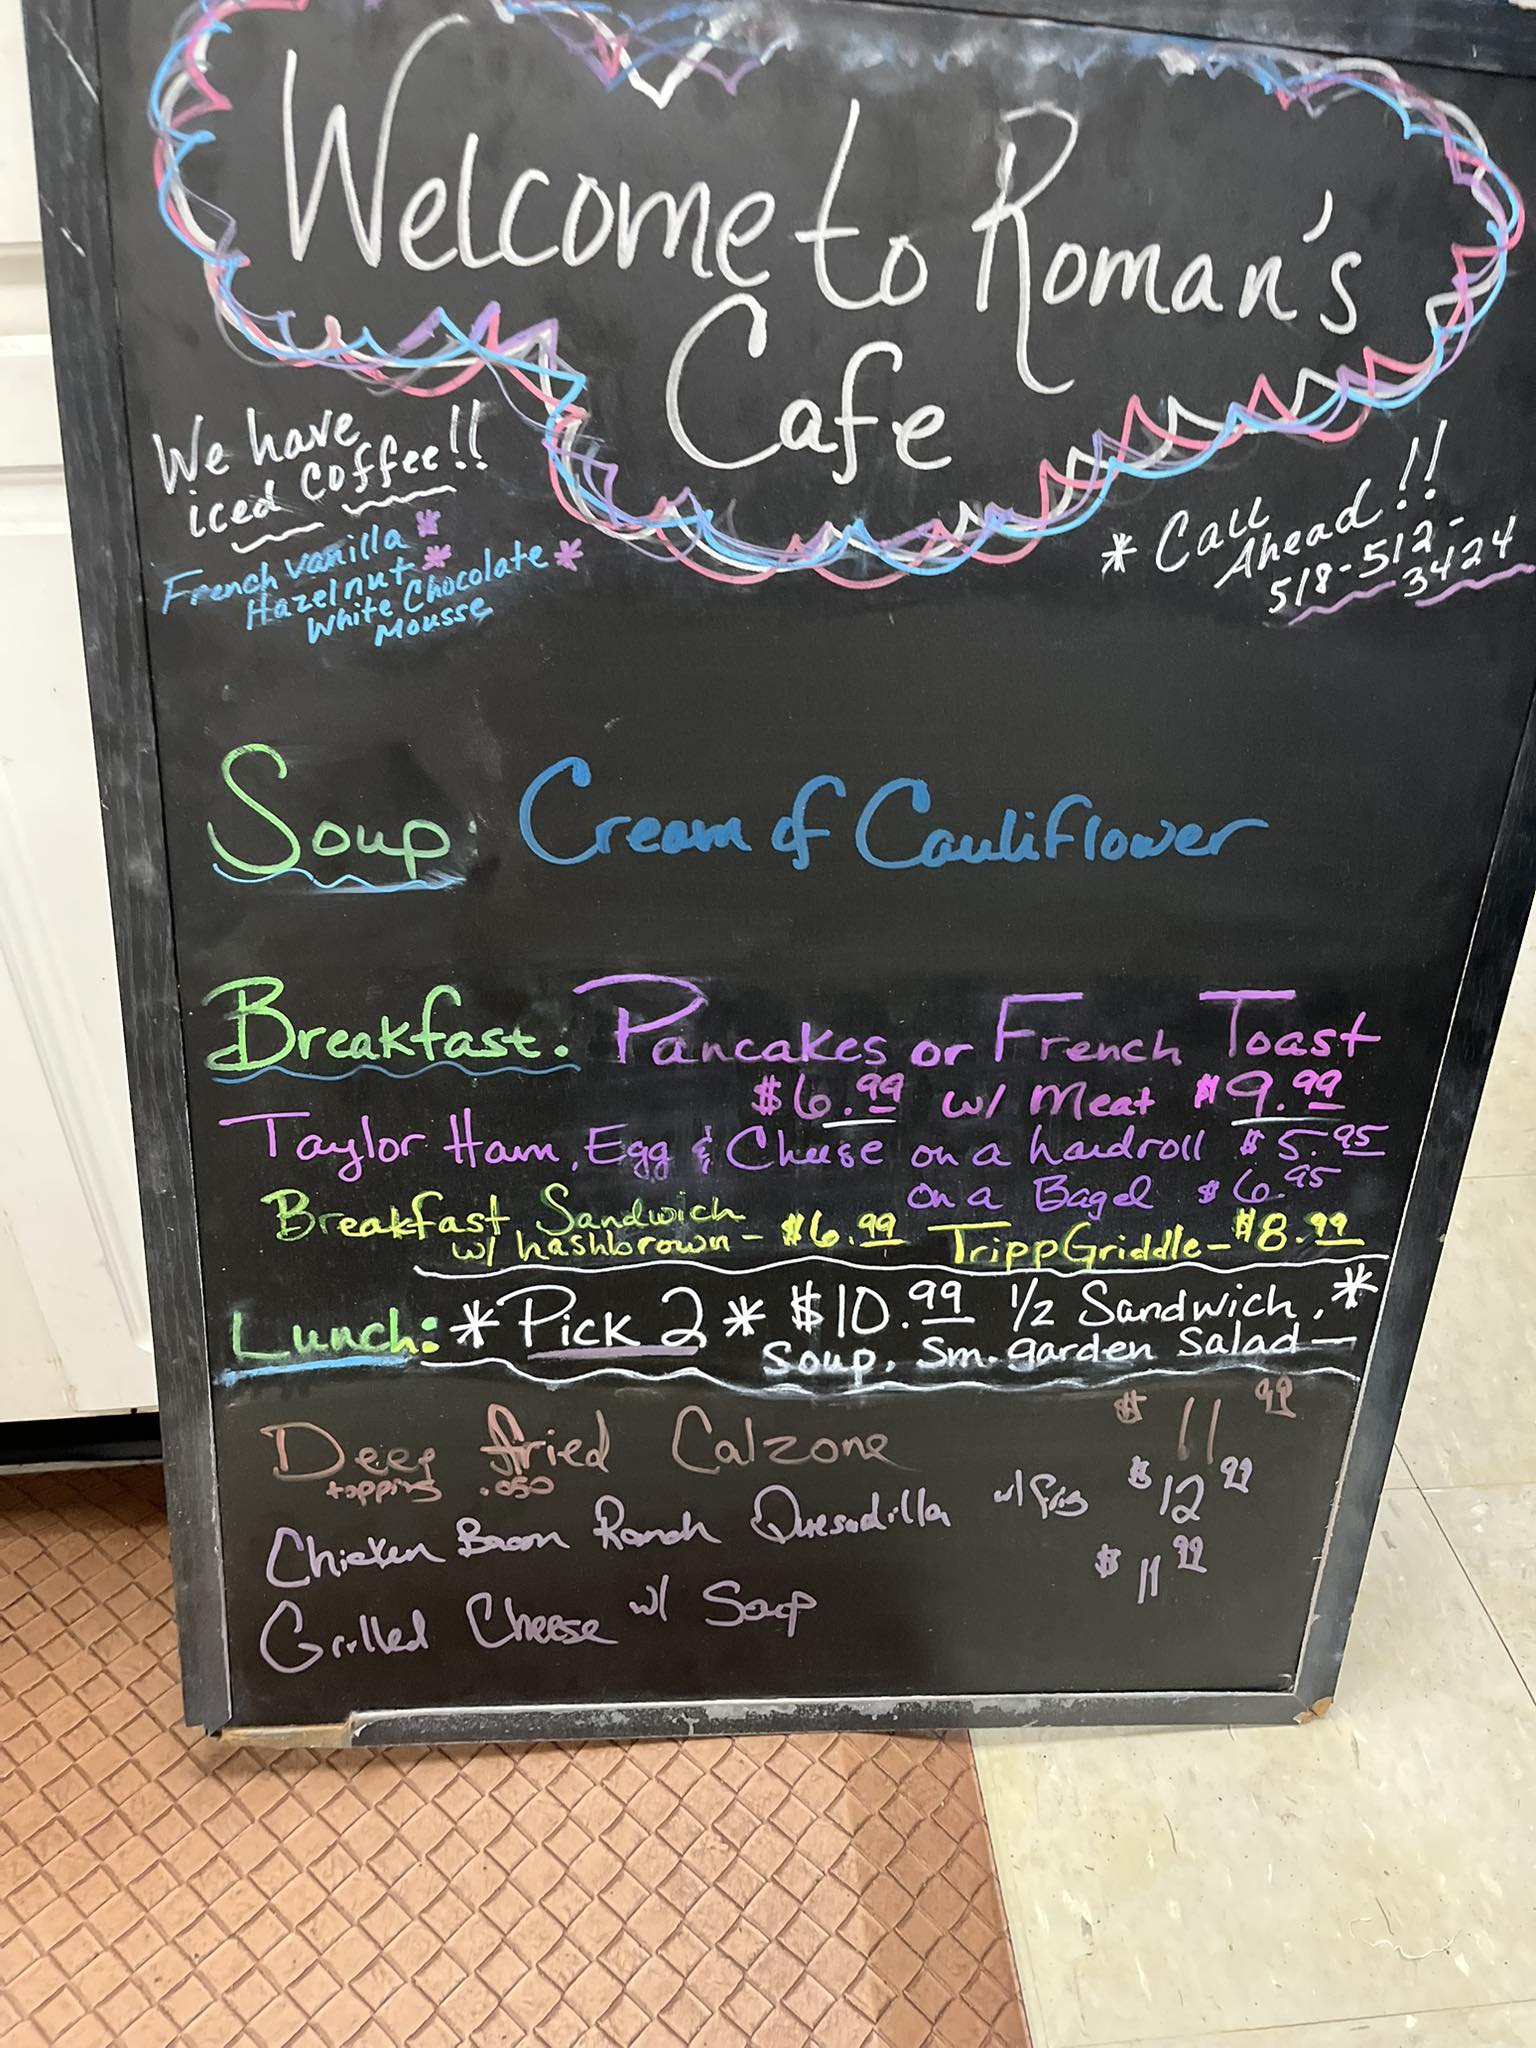 Welcome to Roman's
Cafe
We have
iced coffee!!
French Vanilla *
Hazelnut *
White Chocolate *
Mousse
* Call
Ahead!!
518-512-
3424
Soup. Cream of Cauliflower
Breakfast. Pancakes or French Toast
$6.99 w/ Meat $9.99
Taylor Ham, Egg & Cheese on a hardroll $5.95
on a Bagel $6.95
Breakfast Sandwich
w/ hashbrown - $6.99 TrippGriddle - $8.99
Lunch: * Pick 2 * $10.99 1/2 Sandwich, *
Soup, Sm. garden Salad
Deep fried Calzone $11.99
topping .050
Chicken Bacon Ranch Quesadilla w/ fries $12.99
Grilled Cheese w/ Soup $11.99